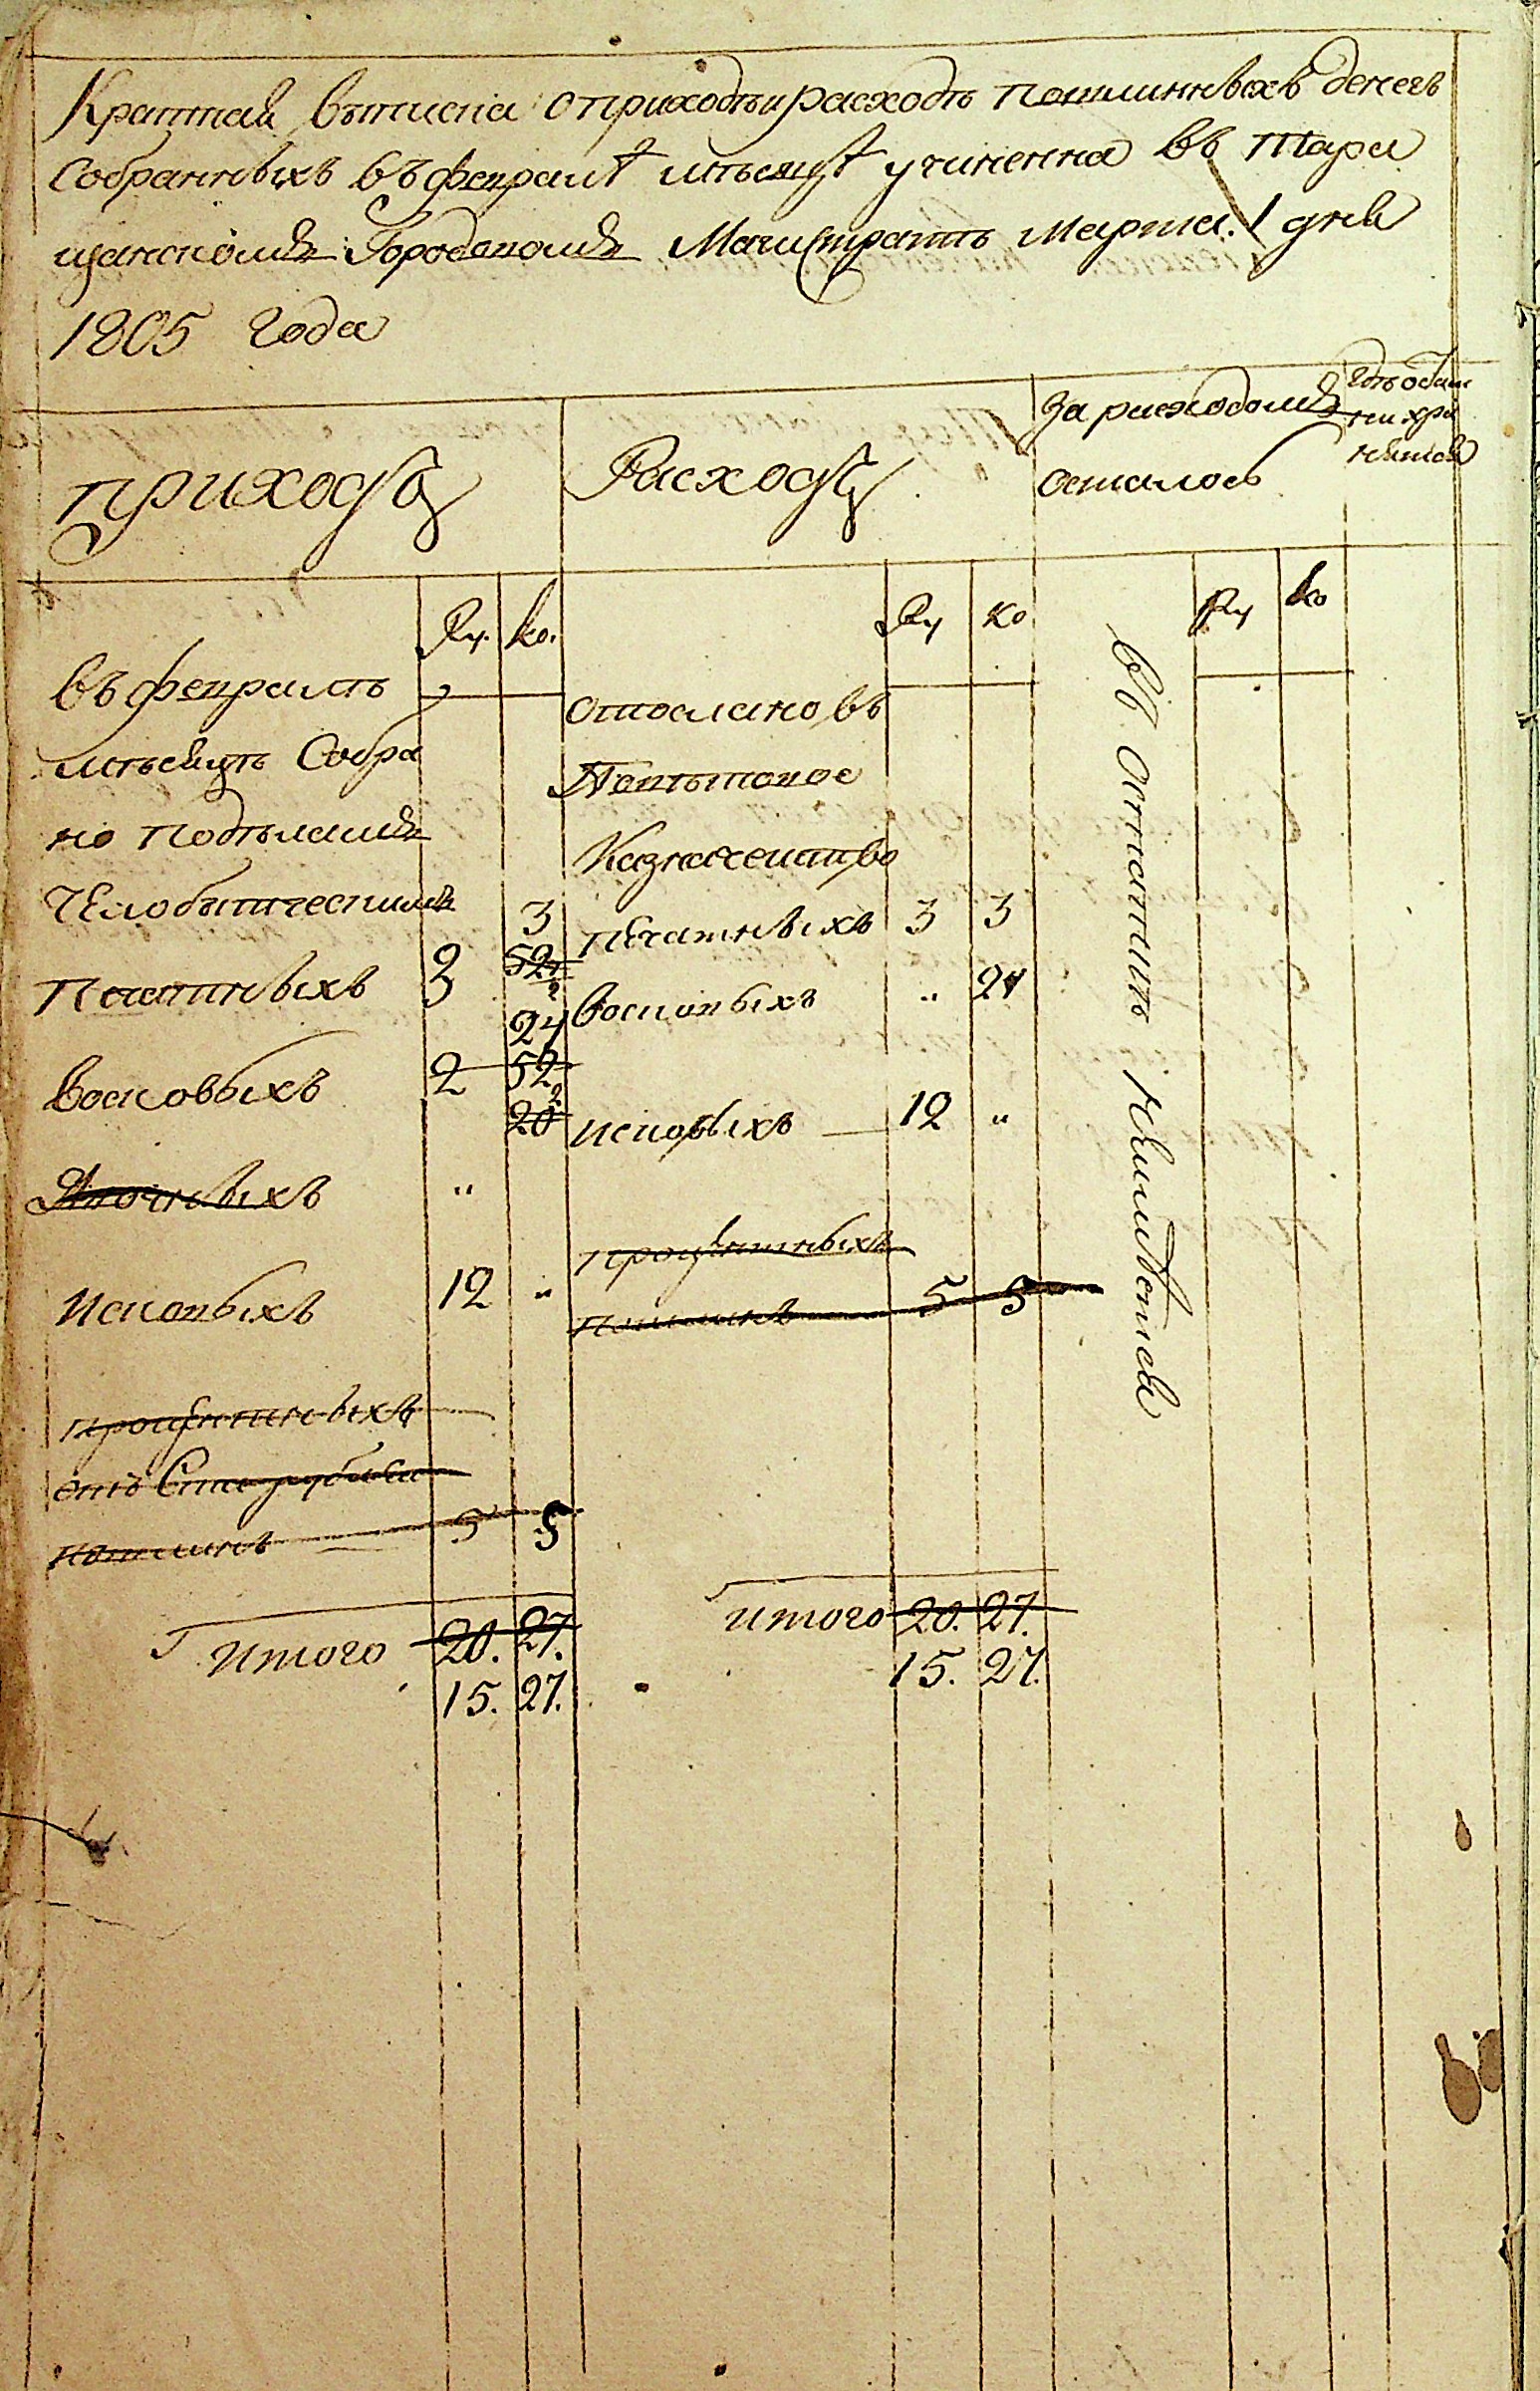 Краткая выписка о приходѣ и расходѣ пошлинныхъ денегъ
собранныхъ въ февралѣ мѣсяцѣ учиненна въ Тара
щанскомъ Городовомъ Магистратѣ Марта 1 дня
1805 года
приходъ
Расходъ
За расходомъ
осталось
Гдѣ оные
хра
нятся
Ру. ко.
Ру ко
Ру ко
въ февралѣ
мѣсяцѣ Собра
но по дѣламъ
Челобитческимъ
3
Печатныхъ 3 52
24
Восковыхъ 2 52
20
"
Исковыхъ 12 "
процентныхъ
отъ Ста рубля
пошлинъ 5 5
Итого 20. 27.
15. 27.
отослано въ
Казначейство
печатныхъ 3 3
восковыхъ " 24
исковыхъ 12 "
процентныхъ
пошлинъ 5 5
итого 20. 27.
15. 27.
въ остаткѣ неимѣется